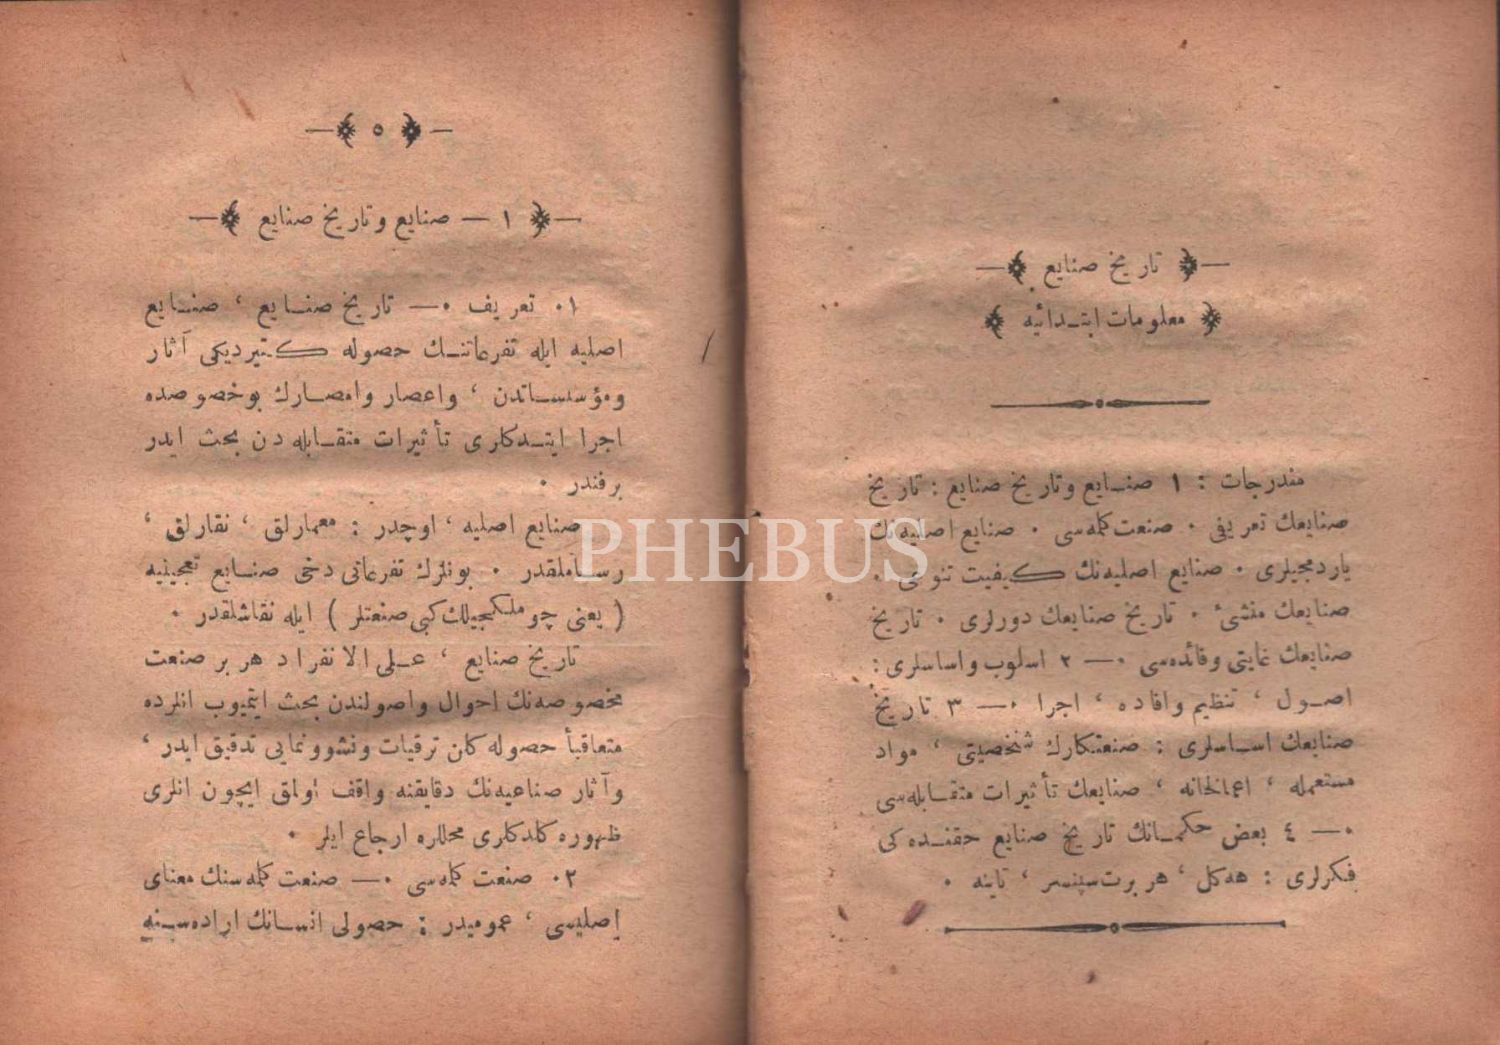 تاریخ صنایع
معلومات ابتدائیه
مندرجات : ١ صنایع وتاریخ صنایع : تاریخ
صنایعك تعریفی . صنعت كلمه‌سی . صنایع اصلیه‌نك
یاردمجیلری . صنایع اصلیه‌نك كیفیت تنوعی .
صنایعك منشئ . تاریخ صنایعك دورلری . تاریخ
صنایعك غایتی وفائده‌سی .— ٢ اسلوب واساسلری :
اصول ، تنظیم وافاده ، اجرا .— ٣ تاریخ
صنایعك اساسلری : صنعتكارك شخصیتی ، مواد
مستعمله ، اعمالخانه ، صنایعك تأثیرات متقابله‌سی
.— ٤ بعض حكمانك تاریخ صنایع حقنده كی
فكرلری : هه‌كل ، هربرت سپنسر ، تاینه .
٥
١ — صنایع وتاریخ صنایع
١. تعریف .— تاریخ صنایع ، صنایع
اصلیه ایله تفرعاتنك حصوله كتیردیكی آثار
ومؤسساتدن ، واعصار وامصارك بوخصوصده
اجرا ایتدكاری تأثیرات متقابله دن بحث ایدر
برفندر .
صنایع اصلیه ، اوچدر : معمارلق ، نقارلق ،
رساملقدر . بونلرك تفرعاتی دخی صنایع تعجینیه
( یعنی چوملكجیلك كبی صنعتلر ) ایله نقاشلقدر .
تاریخ صنایع ، علی الانفراد هر بر صنعت
مخصوصه‌نك احوال واصولندن بحث ایتمیوب انلرده
متعاقباً حصوله كلن ترقیات ونشوونمایی تدقیق ایدر ،
وآثار صناعیه‌نك دقایقنه واقف اولمق ایچون انلری
ظهوره كلدكلری محللره ارجاع ایلر .
٢. صنعت كلمه‌سی .— صنعت كلمه سنك معنای
اصلیسی ، عمومیدر : حصولی انسانك اراده‌سنه
PHEBUS